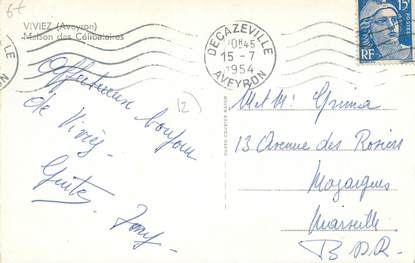 6f
VIVIEZ (Aveyron)
Maison des Célibataires
DECAZEVILLE
10H45
15-7
1954
AVEYRON
15F
RF
12
Affectueux bonjour
de Viviez.
Tony
M et Me Grima
13 Avenue des Rosiers
Mazargues
Marseille
B.D.R.